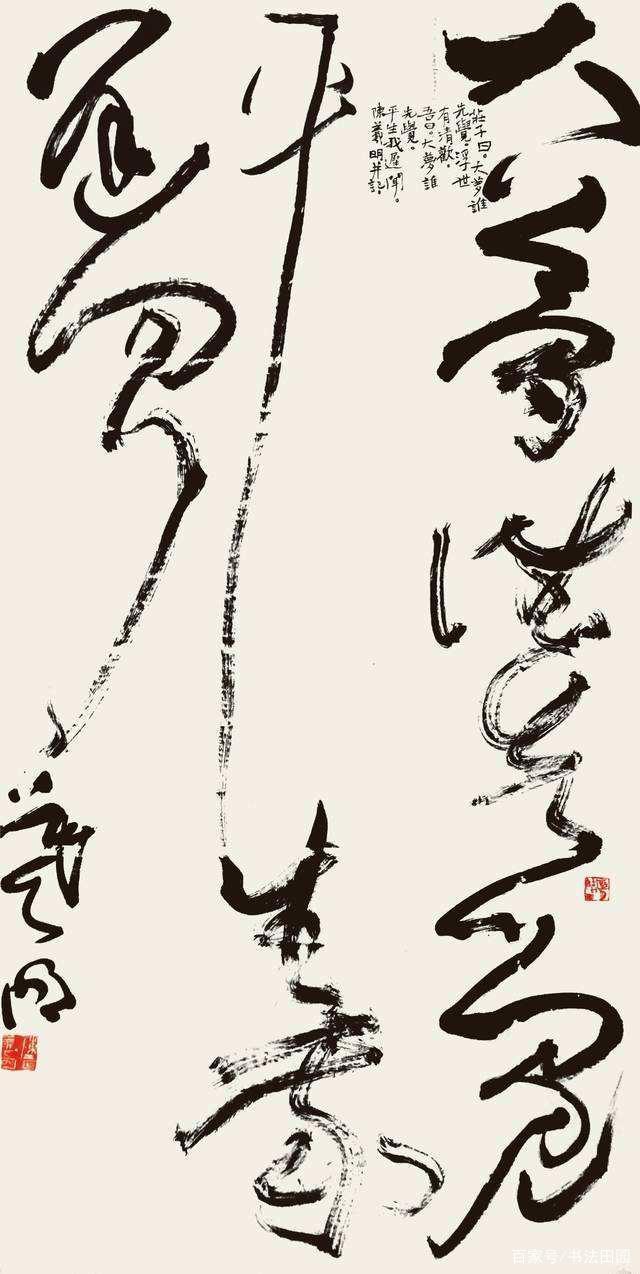 大夢誰先覺
平生我
遲聞
羲明
莊子曰。大夢誰
先覺。浮世
有清歡。
吾曰。大夢誰
先覺。
平生我遲聞。
陳羲明并記。
百家号/书法田园